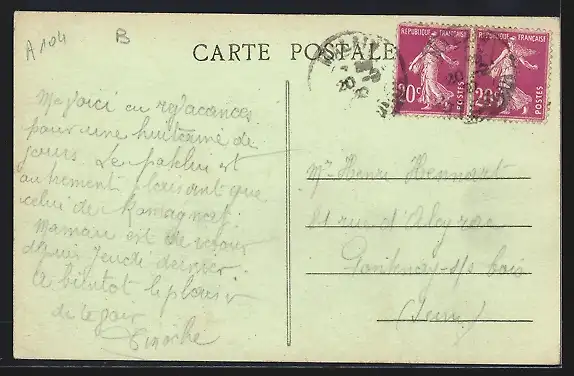 A 104 B
CARTE POSTALE
REPUBLIQUE FRANÇAISE
20c POSTES
REPUBLIQUE FRANÇAISE
20c POSTES
Me voici en vacances
pour une huitaine de
jours. Le patelin est
autrement plaisant que
celui de
Maman est de retour
depuis jeudi dernier.
A bientôt le plaisir
de te
Mr Henri Hennart
81 rue d'Alayrac
Fontenay-s/s bois
(Seine)